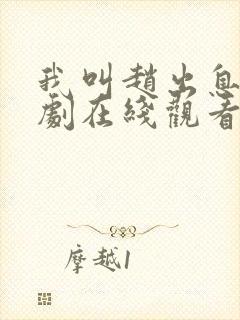 我叫趙出息
劇在綫觀看
摩越1